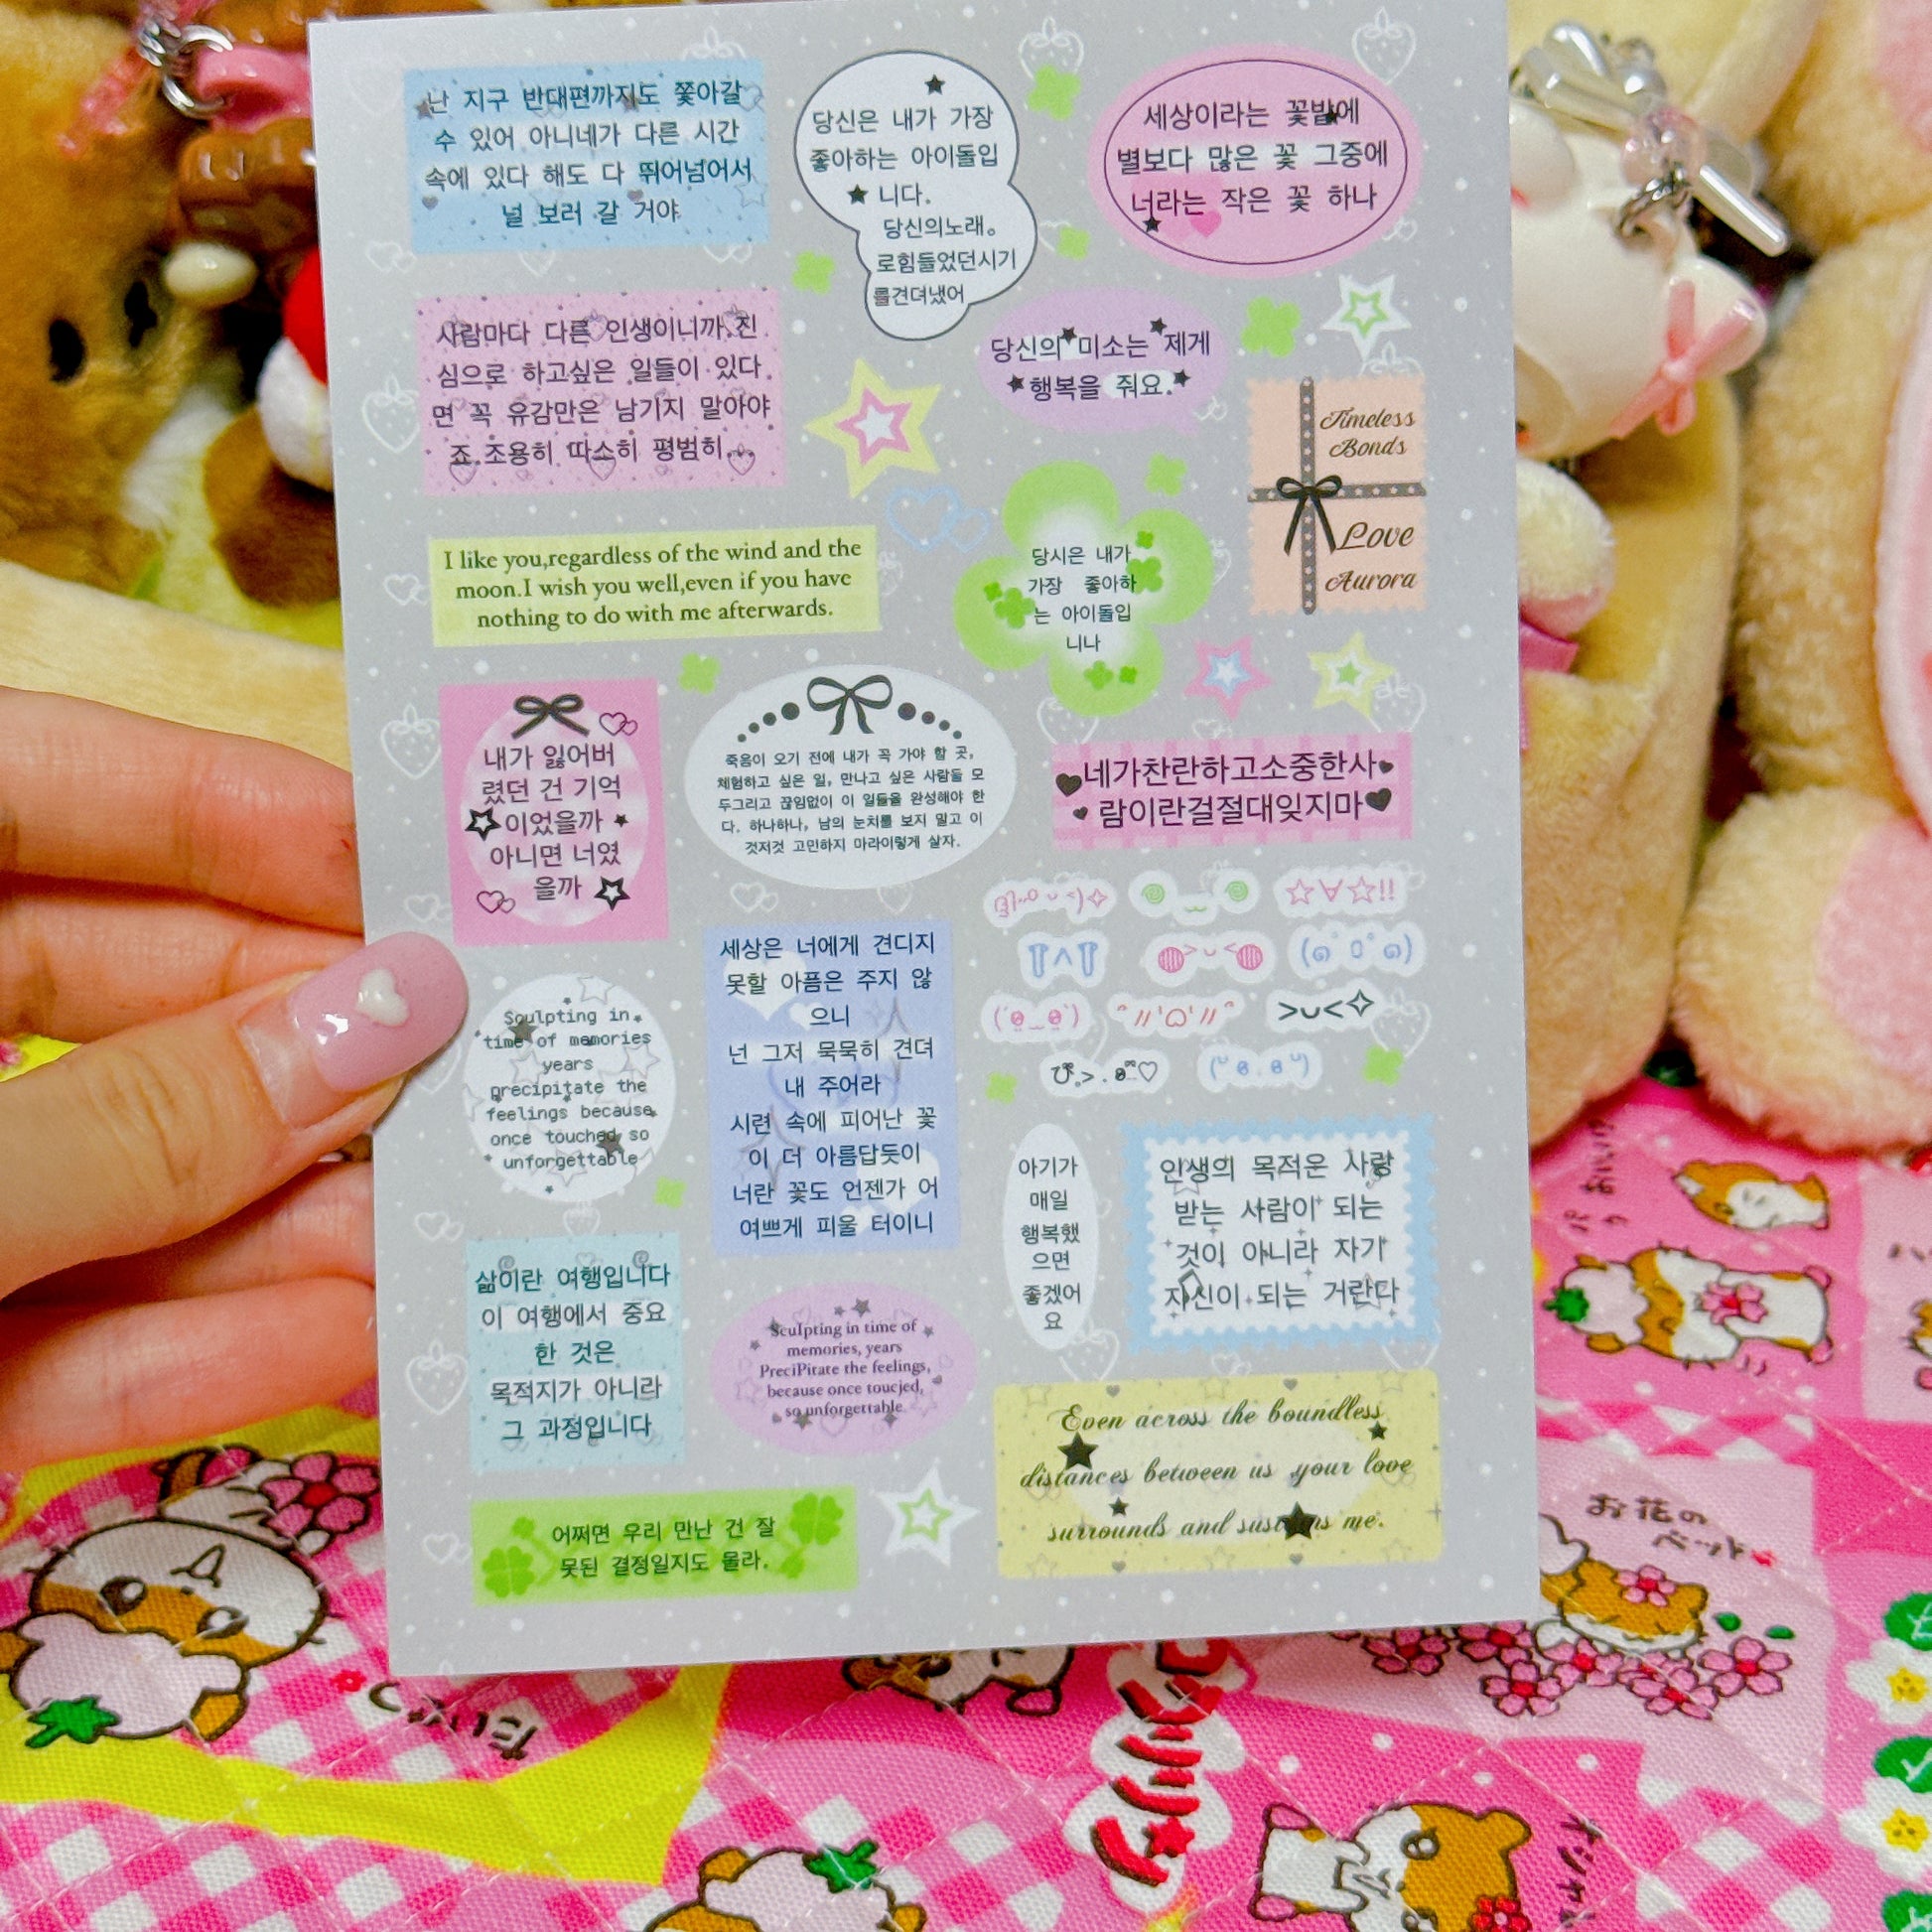 난 지구 반대편까지도 쫓아갈
수 있어 아니네가 다른 시간
속에 있다 해도 다 뛰어넘어서
널 보러 갈 거야
당신은 내가 가장
좋아하는 아이돌입
니다.
당신의노래。
로힘들었던시기
를견뎌냈어
세상이라는 꽃밭에
별보다 많은 꽃 그중에
너라는 작은 꽃 하나
사람마다 다른 인생이니까.진
심으로 하고싶은 일들이 있다
면 꼭 유감만은 남기지 말아야
죠.조용히 따소히 평범히...
당신의 미소는 제게
행복을 줘요.
Timeless
Bonds
Love
Aurora
I like you,regardless of the wind and the
moon.I wish you well,even if you have
nothing to do with me afterwards.
당시은 내가
가장 좋아하
는 아이돌입
니나
내가 잃어버
렸던 건 기억
이었을까
아니면 너였
을까
죽음이 오기 전에 내가 꼭 가야 할 곳,
체험하고 싶은 일, 만나고 싶은 사람들 모
두그리고 끊임없이 이 일들을 완성해야 한
다. 하나하나, 남의 눈치를 보지 말고 이
것저것 고민하지 마라이렇게 살자.
네가찬란하고소중한사
람이란걸절대잊지마
☆∀☆!!
>∪<✧
Sculpting in
time of memories
years
precipitate the
feelings because
once touched so
unforgettable
세상은 너에게 견디지
못할 아픔은 주지 않
으니
넌 그저 묵묵히 견뎌
내 주어라
시련 속에 피어난 꽃
이 더 아름답듯이
너란 꽃도 언젠가 어
여쁘게 피울 터이니
아기가
매일
행복했
으면
좋겠어
요
인생의 목적은 사랑
받는 사람이 되는
것이 아니라 자기
자신이 되는 거란다
삶이란 여행입니다
이 여행에서 중요
한 것은
목적지가 아니라
그 과정입니다
Sculpting in time of
memories, years
PreciPitate the feelings,
because once toucjed,
so unforgettable
Even across the boundless
distances between us ,your love
surrounds and sustains me.
어쩌면 우리 만난 건 잘
못된 결정일지도 몰라.
お花の
ベット